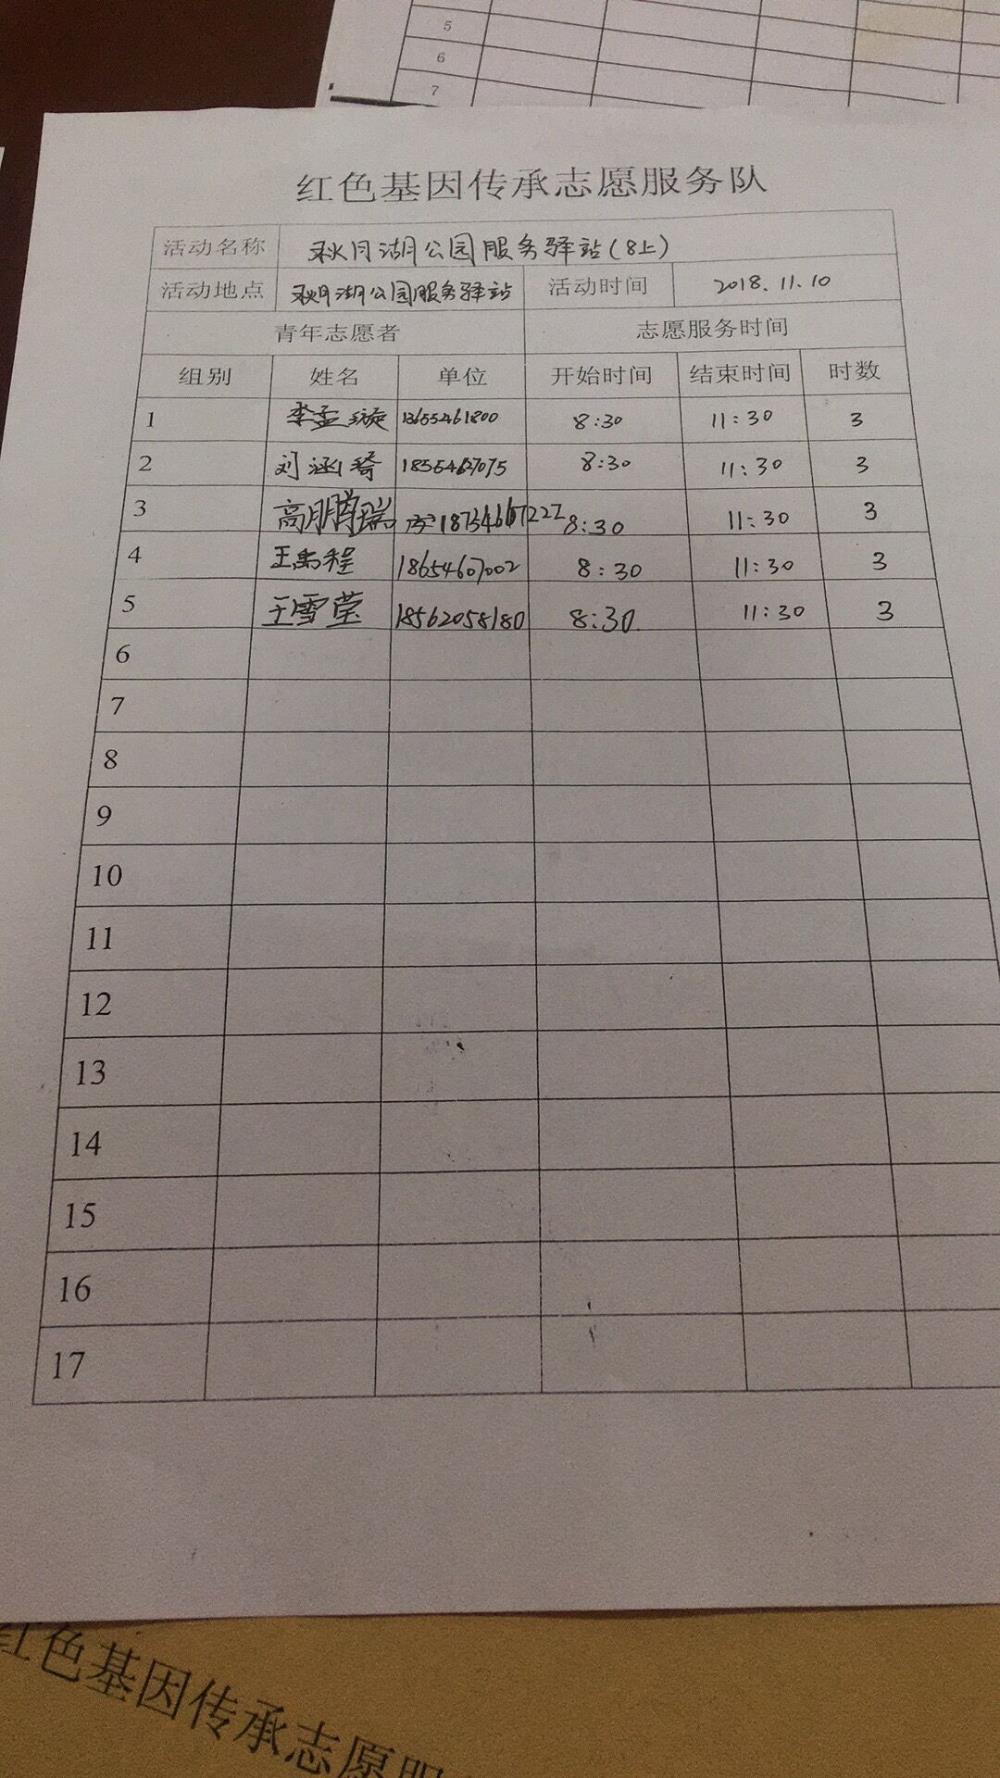 5
6
7
红色基因传承志愿服务队
活动名称 秋月湖公园服务驿站(8上)
活动地点 秋月湖公园服务驿站 活动时间 2018.11.10
青年志愿者 志愿服务时间
组别 姓名 单位 开始时间 结束时间 时数
1 李孟璇 13655461800 8:30 11:30 3
2 刘涵琦 18554627075 8:30 11:30 3
3 高鹏瑞 18734667227 8:30 11:30 3
4 王禹程 18654607002 8:30 11:30 3
5 王雪莹 18562058180 8:30 11:30 3
6
7
8
9
10
11
12
13
14
15
16
17
红色基因传承志愿服